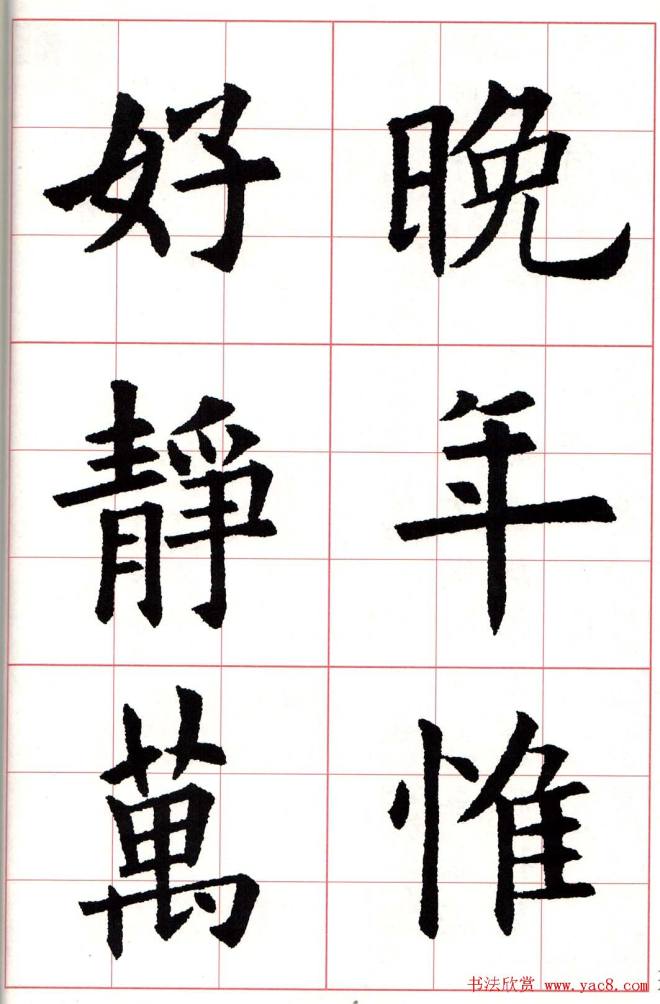 晚年惟
好靜萬
书法欣赏 www.yac8.com